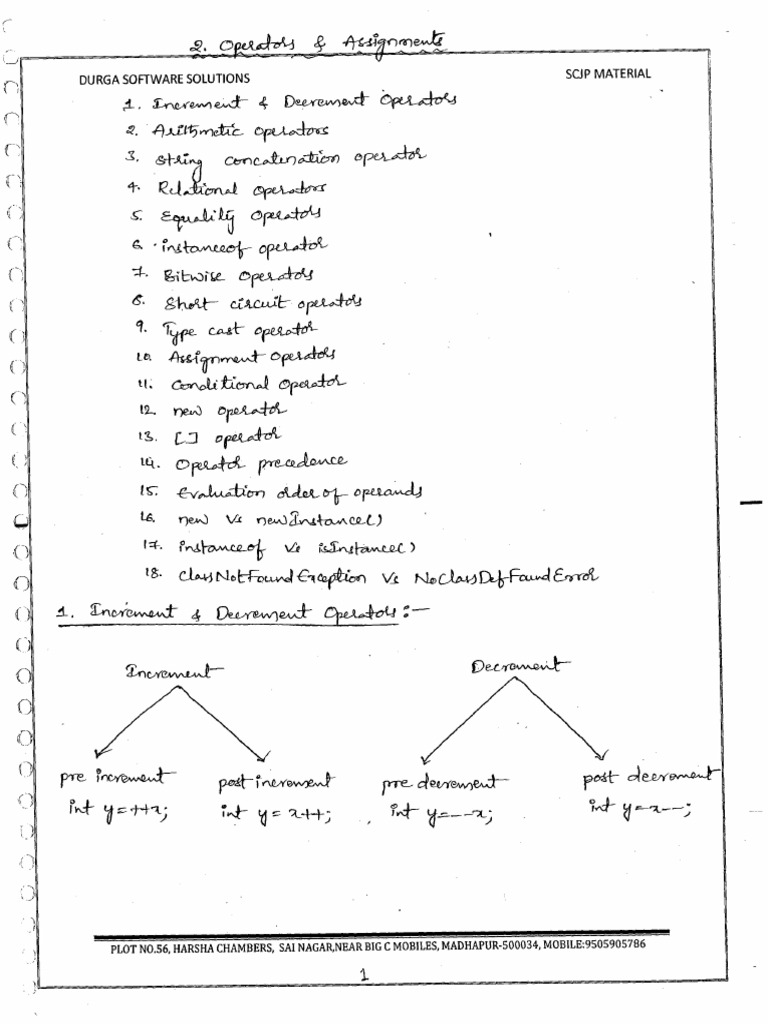 2. Operators & Assignments
DURGA SOFTWARE SOLUTIONS SCJP MATERIAL
1. Increment & Decrement Operators
2. Arithmetic operators
3. String concatenation operator
4. Relational operators
5. Equality operators
6. instanceof operator
7. Bitwise operators
8. Short circuit operators
9. Type cast operator
10. Assignment operators
11. Conditional operator
12. new operator
13. [] operator
14. Operator precedence
15. Evaluation order of operands
16. new Vs newInstance()
17. instanceof Vs isInstance()
18. ClassNotFoundException Vs NoClassDefFoundError
1. Increment & Decrement Operators:-
Increment Decrement
pre increment post increment pre decrement post decrement
int y=++x; int y=x++; int y=--x; int y=x--;
PLOT NO.56, HARSHA CHAMBERS, SAI NAGAR,NEAR BIG C MOBILES, MADHAPUR-500034, MOBILE:9505905786
1